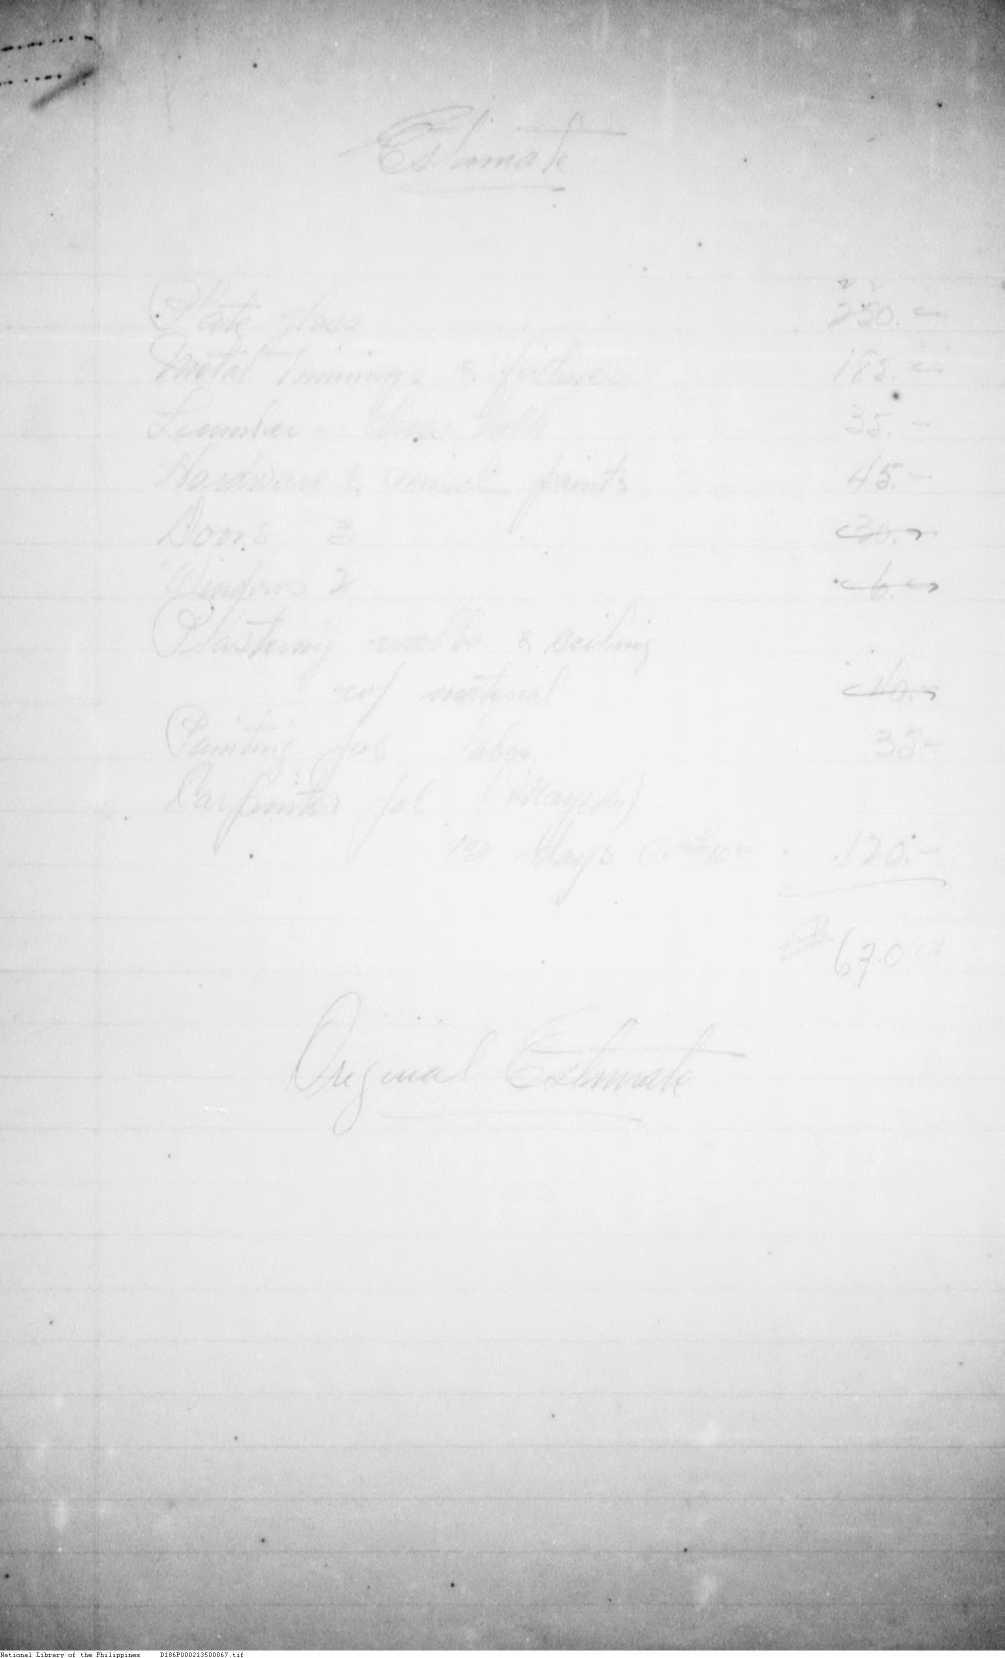 Estimate
Plate glass 250.—
Metal Trimmings & fixtures 185.—
Lumber 35.—
Hardware & paints 45.—
Doors 3 30.—
Windows 2 6.—
Plastering walls & ceiling
w/ material 40.—
Painting job labor 35—
Carpenter job
days 120.—
670
Original Estimate
National Library of the Philippines D186P000213500067.tif